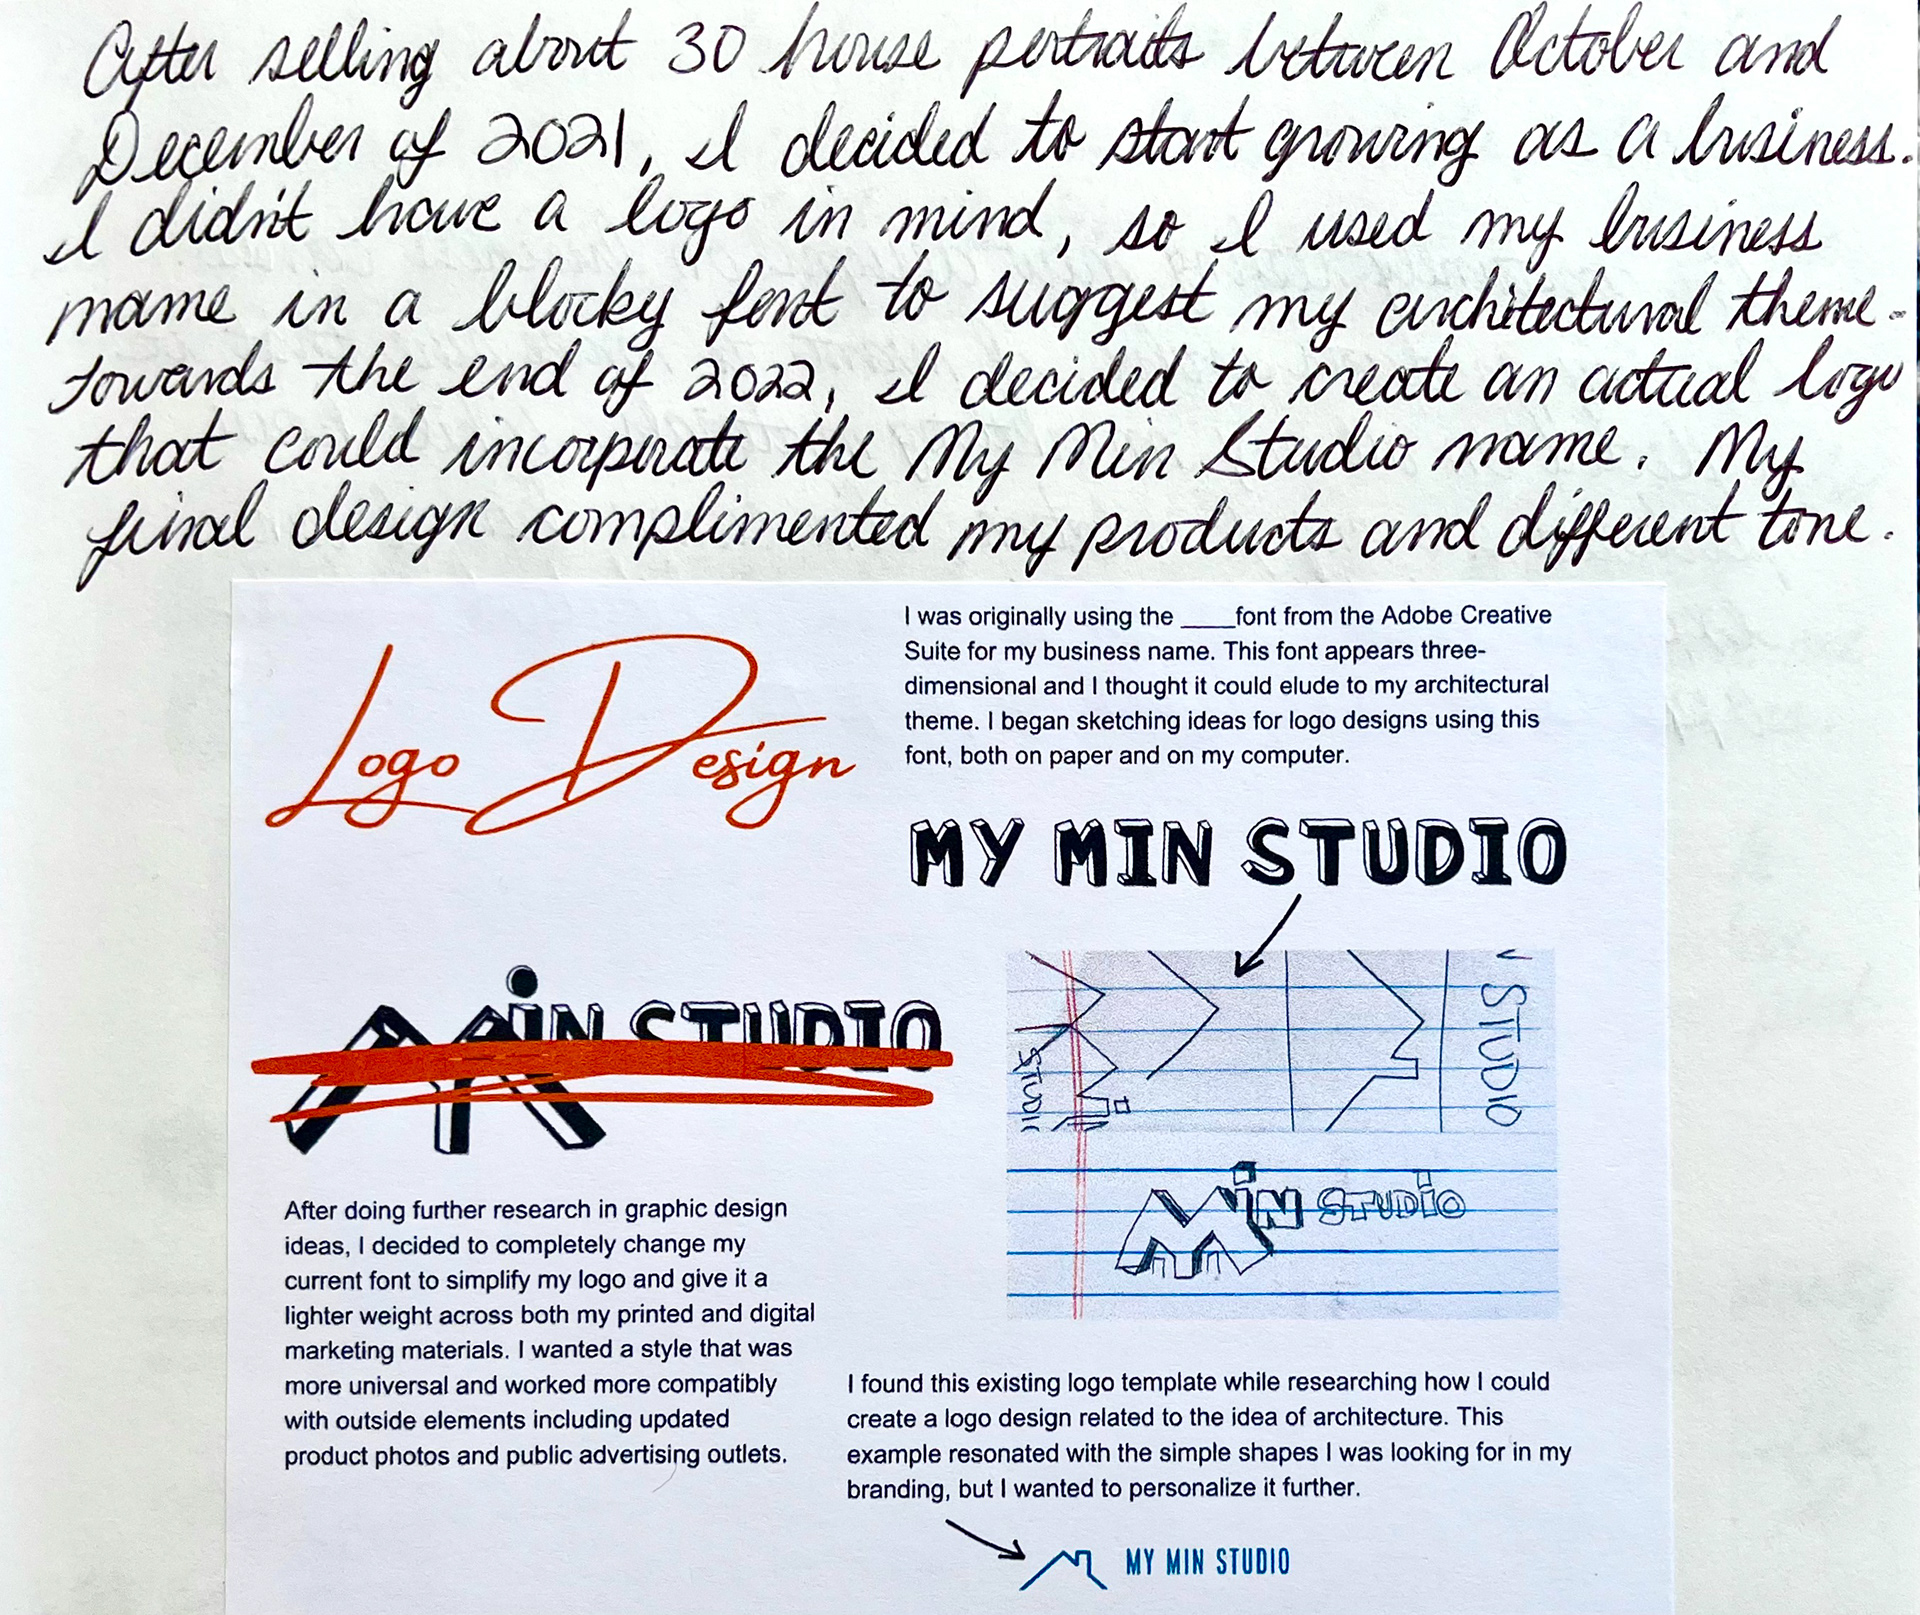 After selling about 30 house portraits between October and
December of 2021, I decided to start growing as a business.
I didn't have a logo in mind, so I used my business
name in a blocky font to suggest my architectural theme.
towards the end of 2022, I decided to create an actual logo
that could incorporate the My Min Studio name. My
final design complimented my products and different tone.
Logo Design
I was originally using the ____font from the Adobe Creative
Suite for my business name. This font appears three-
dimensional and I thought it could elude to my architectural
theme. I began sketching ideas for logo designs using this
font, both on paper and on my computer.
MY MIN STUDIO
MIN STUDIO
STUDIO
STUDIO
MIN STUDIO
After doing further research in graphic design
ideas, I decided to completely change my
current font to simplify my logo and give it a
lighter weight across both my printed and digital
marketing materials. I wanted a style that was
more universal and worked more compatibly
with outside elements including updated
product photos and public advertising outlets.
I found this existing logo template while researching how I could
create a logo design related to the idea of architecture. This
example resonated with the simple shapes I was looking for in my
branding, but I wanted to personalize it further.
MY MIN STUDIO